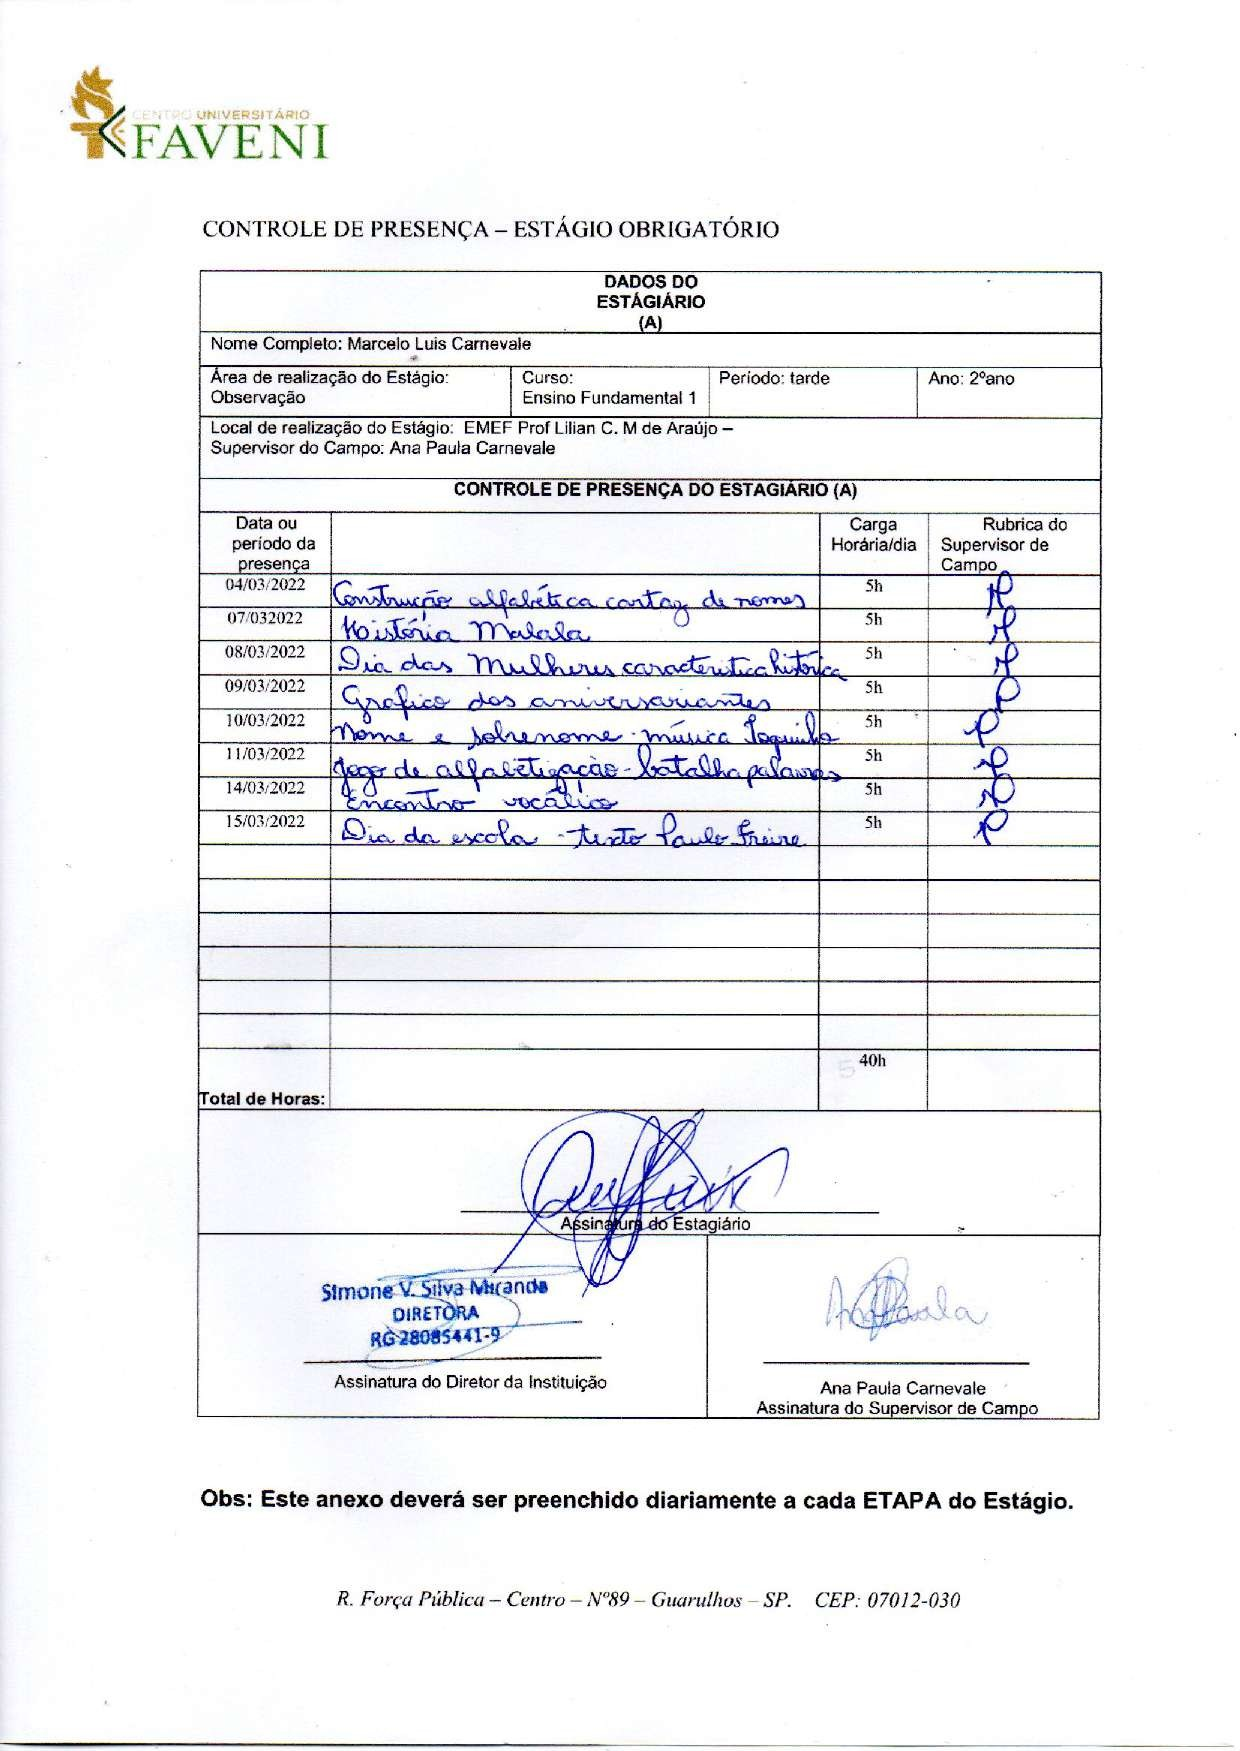 CENTRO UNIVERSITÁRIO
FAVENI
CONTROLE DE PRESENÇA – ESTÁGIO OBRIGATÓRIO
DADOS DO
ESTÁGIÁRIO
(A)
Nome Completo: Marcelo Luis Carnevale
Área de realização do Estágio: Curso: Período: tarde Ano: 2ºano
Observação Ensino Fundamental 1
Local de realização do Estágio: EMEF Prof Lilian C. M de Araújo –
Supervisor do Campo: Ana Paula Carnevale
CONTROLE DE PRESENÇA DO ESTAGIÁRIO (A)
Data ou Carga Rubrica do
período da Horária/dia Supervisor de
presença Campo
04/03/2022 Construção alfabética cartaz de nomes 5h
07/032022 História Malala 5h
08/03/2022 Dia das Mulheres característica histórica 5h
09/03/2022 Grafico dos aniversariantes 5h
10/03/2022 Nome e sobrenome - música Toquinho 5h
11/03/2022 Jogo de alfabetização - batalha palavras 5h
14/03/2022 Encontro vocálico 5h
15/03/2022 Dia da escola - texto Paulo Freire 5h
40h
Total de Horas:
Assinatura do Estagiário
Simone V. Silva Miranda
DIRETORA
RG 28085441-9
Ana Paula
Assinatura do Diretor da Instituição
Ana Paula Carnevale
Assinatura do Supervisor de Campo
Obs: Este anexo deverá ser preenchido diariamente a cada ETAPA do Estágio.
R. Força Pública – Centro – Nº89 – Guarulhos – SP. CEP: 07012-030